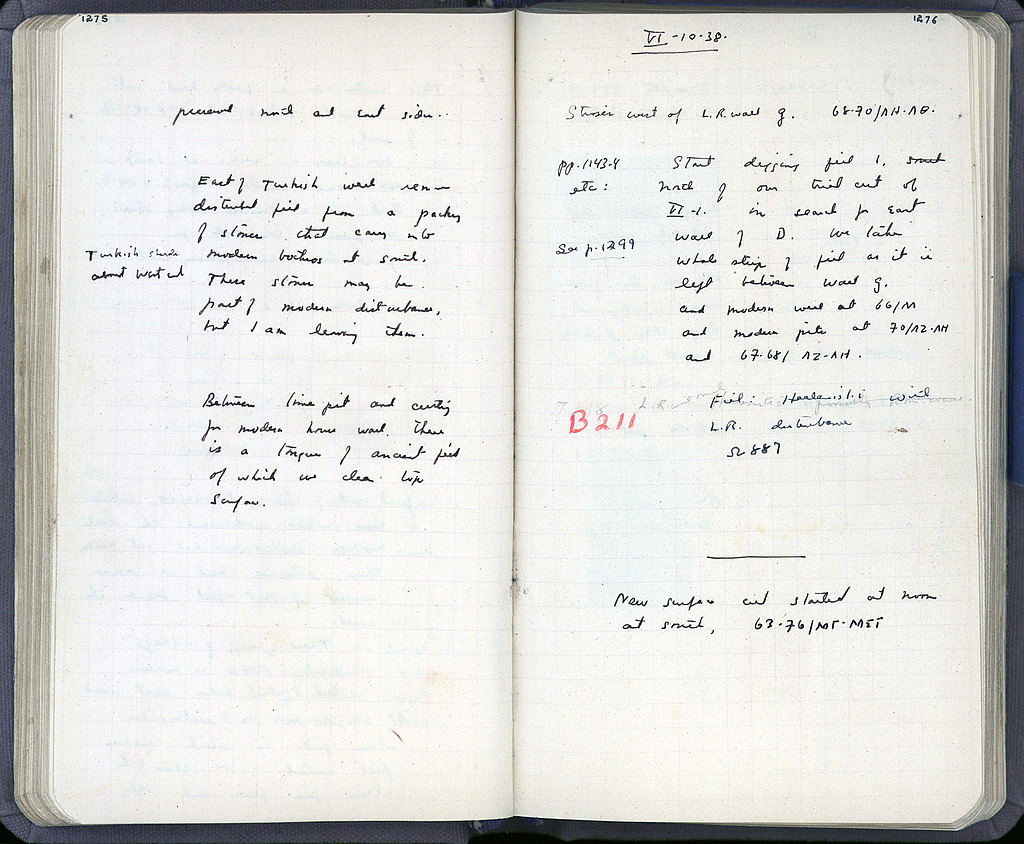 1275
preserved north and east sides.
East of Turkish wall remove
disturbed fill from a packing
of stones that carry into
modern bothros at south.
Turkish sherds
about west end
These stones may be
part of modern disturbance,
but I am leaving them.
Between lime pit and cutting
for modern house wall, there
is a tongue of ancient fill
of which we clean top
surface.
1276
VI-10-38.
Stroses west of L.R. wall g. 68-70/ΛH-ΛΘ.
pp. 1143-4
etc:
Start digging fill 1, south
north of our trial cut of
VI-1. in search for East
wall of D. We take
See p. 1299
whole strip of fill as it is
left between wall g.
and modern wall at 66/Μ
and modern pits at 70/ΛΖ-ΛΗ
and 67-68/ΛΖ-ΛΗ.
B211
Fill: Hellenistic with
L.R. disturbance
Ω 887
New surface cut started at noon
at south, 63-76/